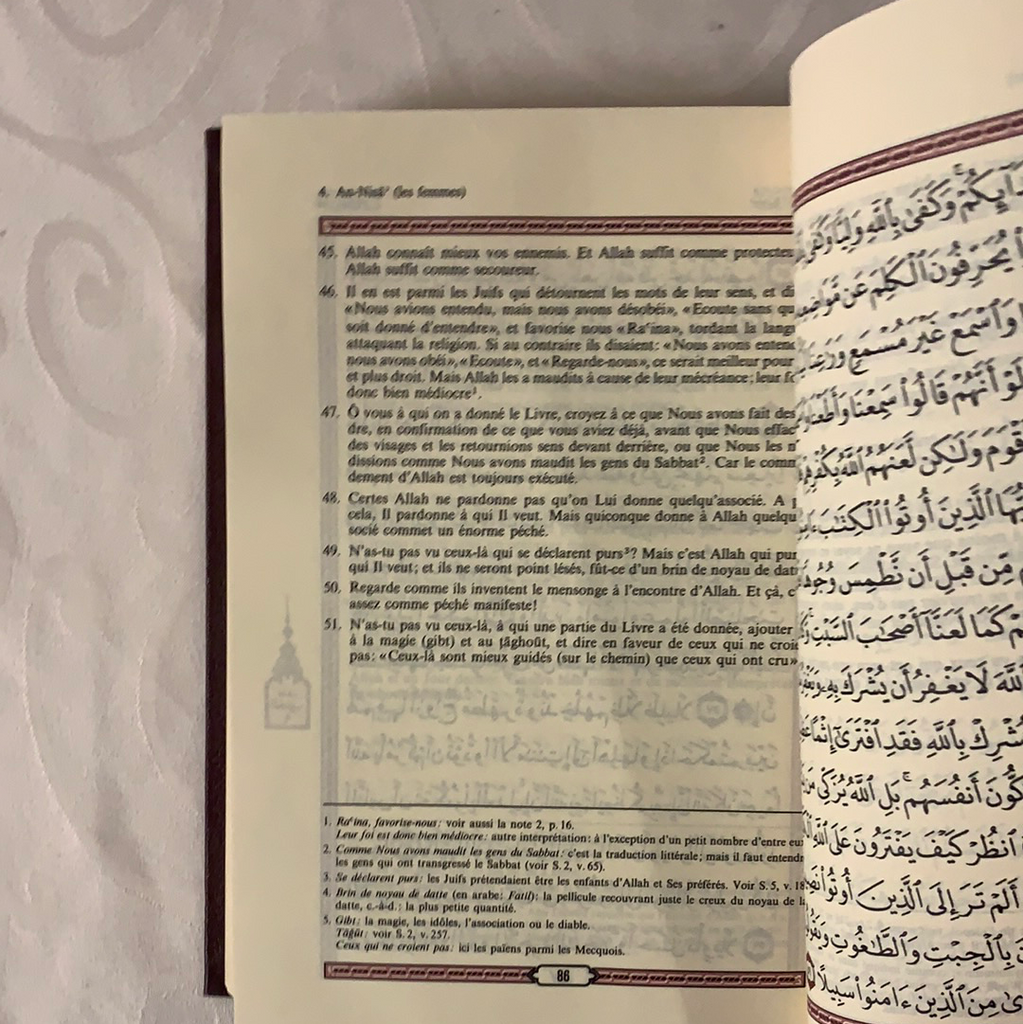 4. An-Nisâ' (les femmes)
45. Allah connaît mieux vos ennemis. Et Allah suffit comme protecte
Allah suffit comme secoureur.
46. Il en est parmi les Juifs qui détournent les mots de leur sens, et di
«Nous avions entendu, mais nous avons désobéi», «Ecoute sans qu
soit donné d'entendre», et favorise nous «Raʿina», tordant la lang
attaquant la religion. Si au contraire ils disaient: «Nous avons enten
nous avons obéi», «Ecoute», et «Regarde-nous», ce serait meilleur pour
et plus droit. Mais Allah les a maudits à cause de leur mécréance; leur f
donc bien médiocre¹.
47. Ô vous à qui on a donné le Livre, croyez à ce que Nous avons fait des
dre, en confirmation de ce que vous aviez déjà, avant que Nous effac
des visages et les retournions sens devant derrière, ou que Nous les
dissions comme Nous avons maudit les gens du Sabbat². Car le comm
dement d'Allah est toujours exécuté.
48. Certes Allah ne pardonne pas qu'on Lui donne quelqu'associé. A
cela, Il pardonne à qui Il veut. Mais quiconque donne à Allah quelqu
socié commet un énorme péché.
49. N'as-tu pas vu ceux-là qui se déclarent purs³? Mais c'est Allah qui pur
qui Il veut; et ils ne seront point lésés, fût-ce d'un brin de noyau de dat
50. Regarde comme ils inventent le mensonge à l'encontre d'Allah. Et çà, c'
assez comme péché manifeste!
51. N'as-tu pas vu ceux-là, à qui une partie du Livre a été donnée, ajouter
à la magie (gibt) et au ṭâghoût, et dire en faveur de ceux qui ne croi
pas: «Ceux-là sont mieux guidés (sur le chemin) que ceux qui ont cru»
1. Raʿina, favorise-nous: voir aussi la note 2, p. 16.
Leur foi est donc bien médiocre: autre interprétation: à l'exception d'un petit nombre d'entre eu
2. Comme Nous avons maudit les gens du Sabbat: c'est la traduction littérale; mais il faut entend
les gens qui ont transgressé le Sabbat (voir S. 2, v. 65).
3. Se déclarent purs: les Juifs prétendaient être les enfants d'Allah et Ses préférés. Voir S. 5, v. 18
4. Brin de noyau de datte (en arabe: Fatîl): la pellicule recouvrant juste le creux du noyau de l
datte, c.-à-d.: la plus petite quantité.
5. Gibt: la magie, les idôles, l'association ou le diable.
Tâğût: voir S. 2, v. 257.
Ceux qui ne croient pas: ici les païens parmi les Mecquois.
86
وَكَفَىٰ بِٱللَّهِ وَلِيًّا وَكَفَىٰ
يُحَرِّفُونَ ٱلْكَلِمَ عَن مَّوَاضِعِ
وَٱسْمَعْ غَيْرَ مُسْمَعٍ وَرَٰعِنَا
لَوْ أَنَّهُمْ قَالُوا۟ سَمِعْنَا وَأَطَعْنَا
وَلَٰكِن لَّعَنَهُمُ ٱللَّهُ بِكُفْرِهِ
ٱلَّذِينَ أُوتُوا۟ ٱلْكِتَٰبَ
مِّن قَبْلِ أَن نَّطْمِسَ وُجُوهًا
كَمَا لَعَنَّآ أَصْحَٰبَ ٱلسَّبْتِ
لَا يَغْفِرُ أَن يُشْرَكَ بِهِۦ
بِٱللَّهِ فَقَدِ ٱفْتَرَىٰٓ إِثْمًا
أَنفُسَهُم بَلِ ٱللَّهُ يُزَكِّى مَن
ٱنظُرْ كَيْفَ يَفْتَرُونَ عَلَى ٱللَّهِ
أَلَمْ تَرَ إِلَى ٱلَّذِينَ أُوتُوا۟
بِٱلْجِبْتِ وَٱلطَّٰغُوتِ
مِنَ ٱلَّذِينَ ءَامَنُوا۟ سَبِيلًا